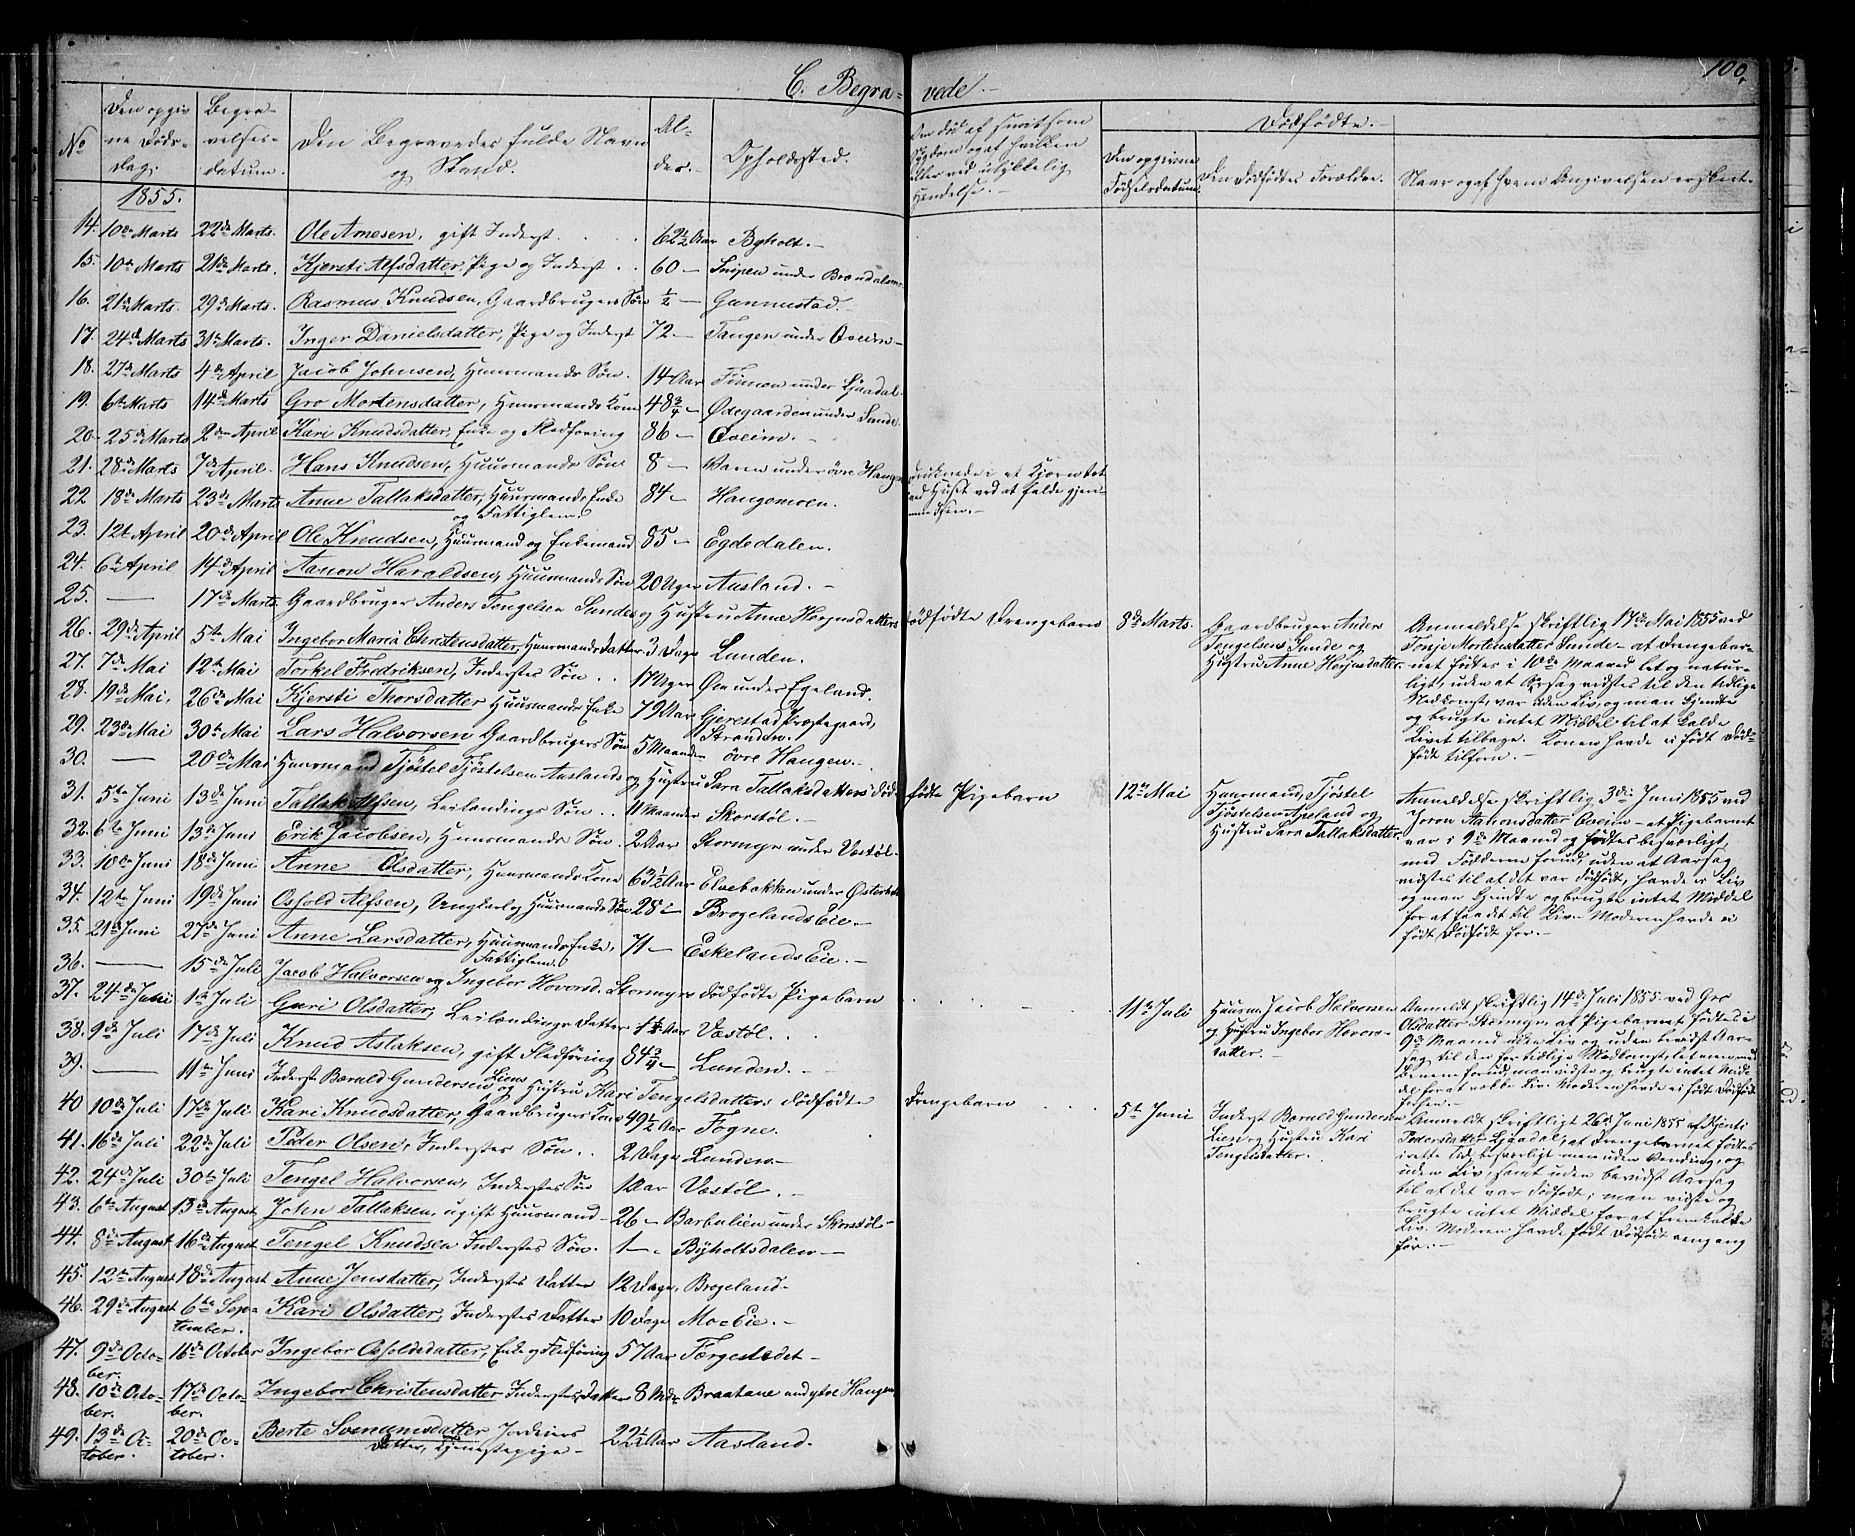 C. Begra- vede.-
100.
No
Den opgiv
ne Døds-
dag.
Begra-
velses-
datum.
Den Begravedes fulde Navn
og Stand.
Al-
der.-
Opholdssted.
Den død af smitsom
Sygdom og af hvilken
eller ved ulykkelig
Hendelse.-
Dødfødte.-
Den opgivne
Fødselsdatum.
Den Dødfødtes Forældre.
Naar og af hvem Angivelsen er skeet.
1855.
14. 10de Marts 22de Marts. Ole Arnesen, gift Inderst 62½ Aar Byholt.-
15. 10de Marts 21de Marts. Kjersti Alfsdatter, Pige og Inderst 60 - Snipen under
16. 21de Marts 29de Marts. Rasmus Knudsen, Gaardbrugers Søn ½ - Gunnustad.-
17. 24de Marts 31te Marts. Inger Danielsdatter, Pige og Inderst 72 - Tangen under Oveim-
18. 27de Marts 4de April Jacob Johnsen, Huusmands Søn. 14 Aar under Ljaadal.
19. 6te Marts 14de Marts Gro Mortensdatter, Huusmands Kone 48¾ - Ødegaarden under Sunde.
20. 25de Marts 2den April Kari Knudsdatter, Enke og Fledføring 86 - Oveim.-
21. 28de Marts 7de April. Hans Knudsen, Huusmands Søn 8 - under øvre Haugen druknede i et
ved Huset ved at falde gjen-
nem Isen.-
22. 18de Marts 23de Marts Anne Tallaksdatter, Huusmands Enke 84 - Haugemoen.
og Fattiglem.
23. 12te April 20de April Ole Knudsen, Huusmand og Enkemand 85 - Egdedalen.
24. 6te April 14de April Aanon Haraldsen, Huusmands Søn 20 Uger Ausland.-
25. — 17de Marts Gaardbruger Anders Tengelsen Sundes og Hustru Anne Høynsdatters dødfødte Drengebarn 8de Marts. Gaardbruger Anders
Tengelsen Sunde og
Hustru Anne Høynsdatter
Anmeldelse skriftlig 17de Mai 1855 ved
Tonje Mortensdatter Sunde - at Drengebar-
net fødtes i 10de Maaned let og natur-
ligt, uden at Aarsag vidstes til den tidlige
Nedkomst, var uden Liv, og man kjendte
og brugte intet Middel til at kalde
Livet tilbage. Konen havde ei født Død-
født tilforn.-
26. 29de April 5te Mai Ingebor Maria Christensdatter, Huusmands Datter 3 Dage Lunden.
27. 7de Mai 12te Mai Torkel Fredriksen, Inderstes Søn 17 Uger Øen under Egeland.
28. 19de Mai, 26de Mai Kjersti Thorsdatter Huusmands Enke 79 Aar Gjerestad Præstegaard,
Stranden.
29. 23de Mai 30te Mai Lars Halvorsen Gaardbrugers Søn 5 Maaneder øvre Haugen.-
30. — 20de Mai Huusmand Tjøstel Tjøstelsen Auslands og Hustru Sara Tallaksdatters død- fødte Pigebarn 12te Mai Huusmand, Tjøstel
Tjøstelsen Apeland og
Hustru Sara Tallaksdatter.
Anmeldelse skriftlig 3de Juni 1855 ved
Joron Aanonsdatter Oveim - at Pigebarnet
var i 9de Maaned og fødtes besværligt,
med Fødderne forud uden at Aarsag
vidstes til at det var Dødfødt, havde ei Liv
og man kjendte og brugte intet Middel
for at faa det til Liv. Moderen havde ei
født Dødfødt før.-
31. 5te Juni 13de Juni Tallak Alfsen, Leilændings Søn 11 Maaneder Skorstøl.-
32. 6te Juni 13de Juni Erik Jacobsen, Huusmands Søn 2 Aar Stormyr under Vestøl.
33. 10de Juni 18de Juni Anne Olsdatter, Huusmands Kone 63½ Aar Elvebakken under Østerholt
34. 12te Juni 19de Juni Osfold Alfsen, Ungkarl og Huusmands Søn 28 - Brogelands Eie.-
35. 21de Juni 27de Juni Anne Larsdatter, Huusmands Enke, 71 - Eskelands Eie.-
Fattiglem.
36. — 15de Juli Jacob Halvorsen og Ingebor Hovorsd. Stormyrs dødfødte Pigebarn 11te Juli Huusm. Jacob Halvorsen
og Hustru Ingebor Hovors-
datter.-
Anmeldt skriftlig 14de Juli 1855 ved Gro
Olsdatter Stormyr, at Pigebarnet fødtes i
9de Maaned uden Liv og uden bevidst Aar-
sag til den for tidlige Nedkomst, let men med
Benene forud, man vidste og brugte intet Mid-
del for at vække Liv. Moderen havde ei født Dødfødt
før.-
37. 24de Juni 1ste Juli Guri Olsdatter, Leilændings Datter Aar Vestøl.
38. 9de Juli 17de Juli Knud Aslaksen, gift Fledføring 84¾ - Lunden.-
39. — 11te Juni Inderst Barald Gundersen Liens og Hustru Kari Tengelsdatters dødfødte Drengebarn 5te Juni Inderst Barald Gundersen
Lien og Hustru Kari
Tengelsdatter.
Anmeldt skriftligt 26de Juni 1855 af Kjersti
Pedersdatter Ljaadal, at Drengebarnet fødtes
i rette Tid, besværligt men uden Vending, og
uden Liv, samt uden bevidst Aarsag
til at det var Dødfødt; man vidste og
brugte intet Middel for at fremkalde
Liv. Moderen havde født Dødfødt en gang
før.-
40. 10de Juli 17de Juli Kari Knudsdatter, Gaardbrugers Kone 49½ Aar Fogne.
41. 16de Juli 22de Juli Peder Olsen, Inderstes Søn 2 Dage Lunden.-
42. 24de Juli 30te Juli Tengel Halvorsen, Inderstes Søn 1 Aar Vestøl.-
43. 6te August 13de August John Tallaksen, ugift Huusmand 26 - Barbulien under Skorstøl-
44. 8de August 16de August Tengel Knudsen Inderstes Søn. 1 - Byholtsdalen-
45. 12te August 18de August Anne Jensdatter, Inderstes Datter 12 Dage, Brogeland-
46. 29de August 6te Sep-
tember. Kari Olsdatter, Inderstes Datter 10 Dage Mo-Eie.-
47. 9de Octo-
ber. 16de October Ingebor Osfoldsdatter, Enke og Fledføring 57 Aar Færgestedet-
48. 10de Octo-
ber. 17de Octo-
ber. Ingebor Christensdatter Inderstes Datter 8 Mdr. Braatane und. øvre Haugen
49. 13de Oc-
tober. 20de Oc-
tober. Berte Svenumsdatter Jordeiers 22½ Aar Aasland.
Datter, Tjenestepige-